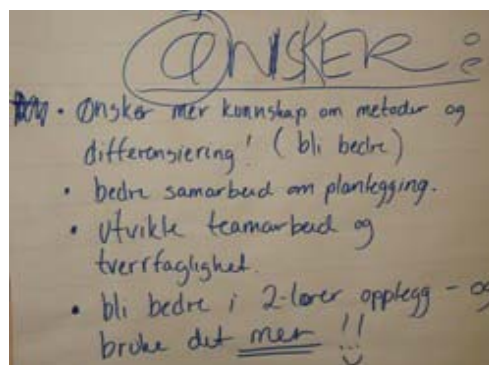 ØNSKER:
• Ønsker mer kunnskap om metoder og
differensiering! (bli bedre)
• bedre samarbeid om planlegging.
• Utvikle teamarbeid og
tverrfaglighet.
• bli bedre i 2-lærer opplegg - og
bruke det mer !!